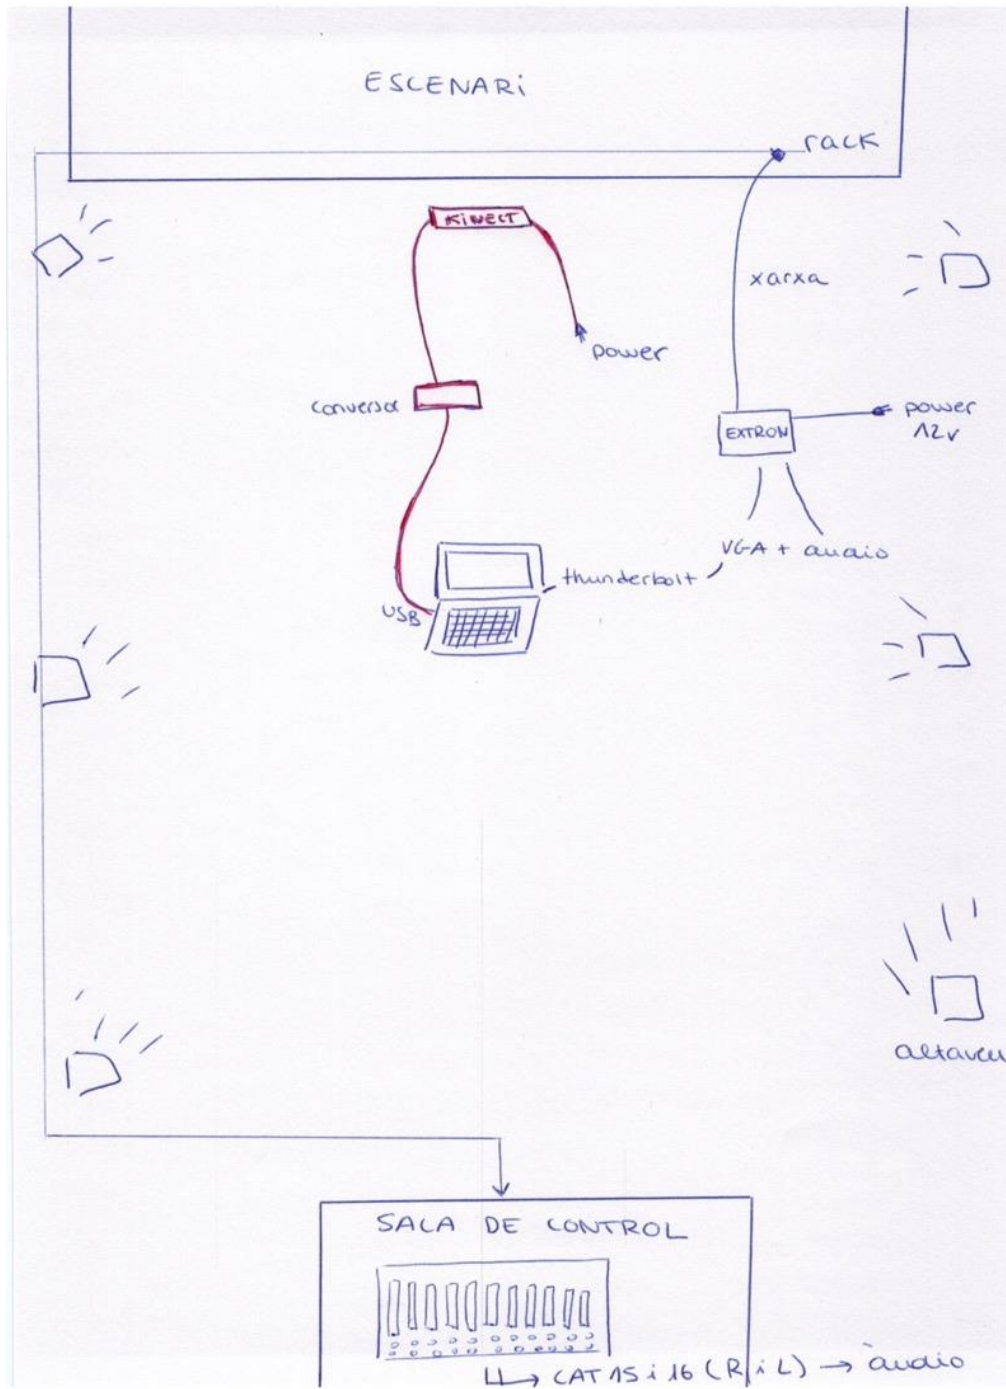 ESCENARi
rack
KiNECT
xarxa
power
conversor
power
12v
EXTRON
VGA + audio
thunderbolt
USB
altaveu
SALA DE CONTROL
CAT 15 i 16 (R i L) → àudio